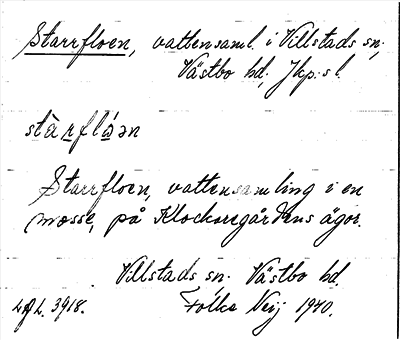 Starrfloen, vattensaml. i Villstads sn,
Västbo hd, Jkp:s l.
stàrflóən
Starrfloen, vattensamling i en
mosse, på Klockaregårdens ägor.
Villstads sn. Västbo hd.
3918. Folke Neij 1940.